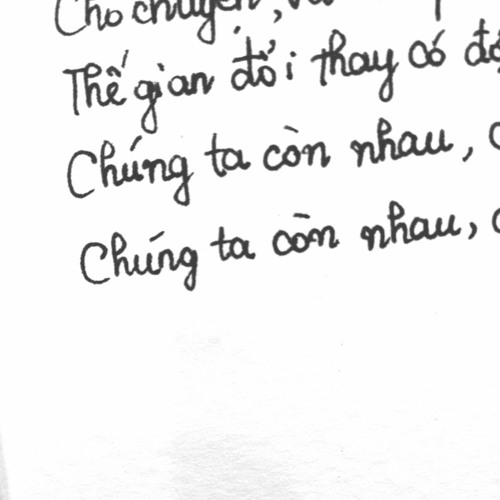 Cho chuyện,
Thế gian đổi thay có
Chúng ta còn nhau,
Chúng ta còn nhau,